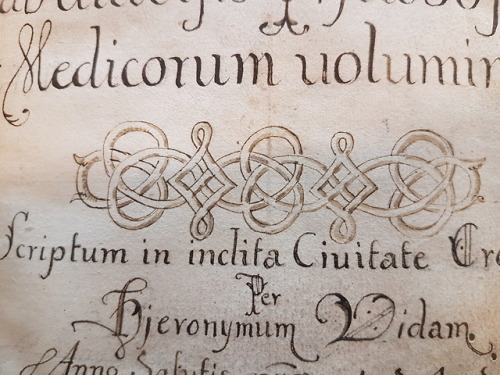 Medicorum uolumin
Scriptum in inclita Ciuitate Cre
Per
Hieronymum Vidam.
Anno Salutis